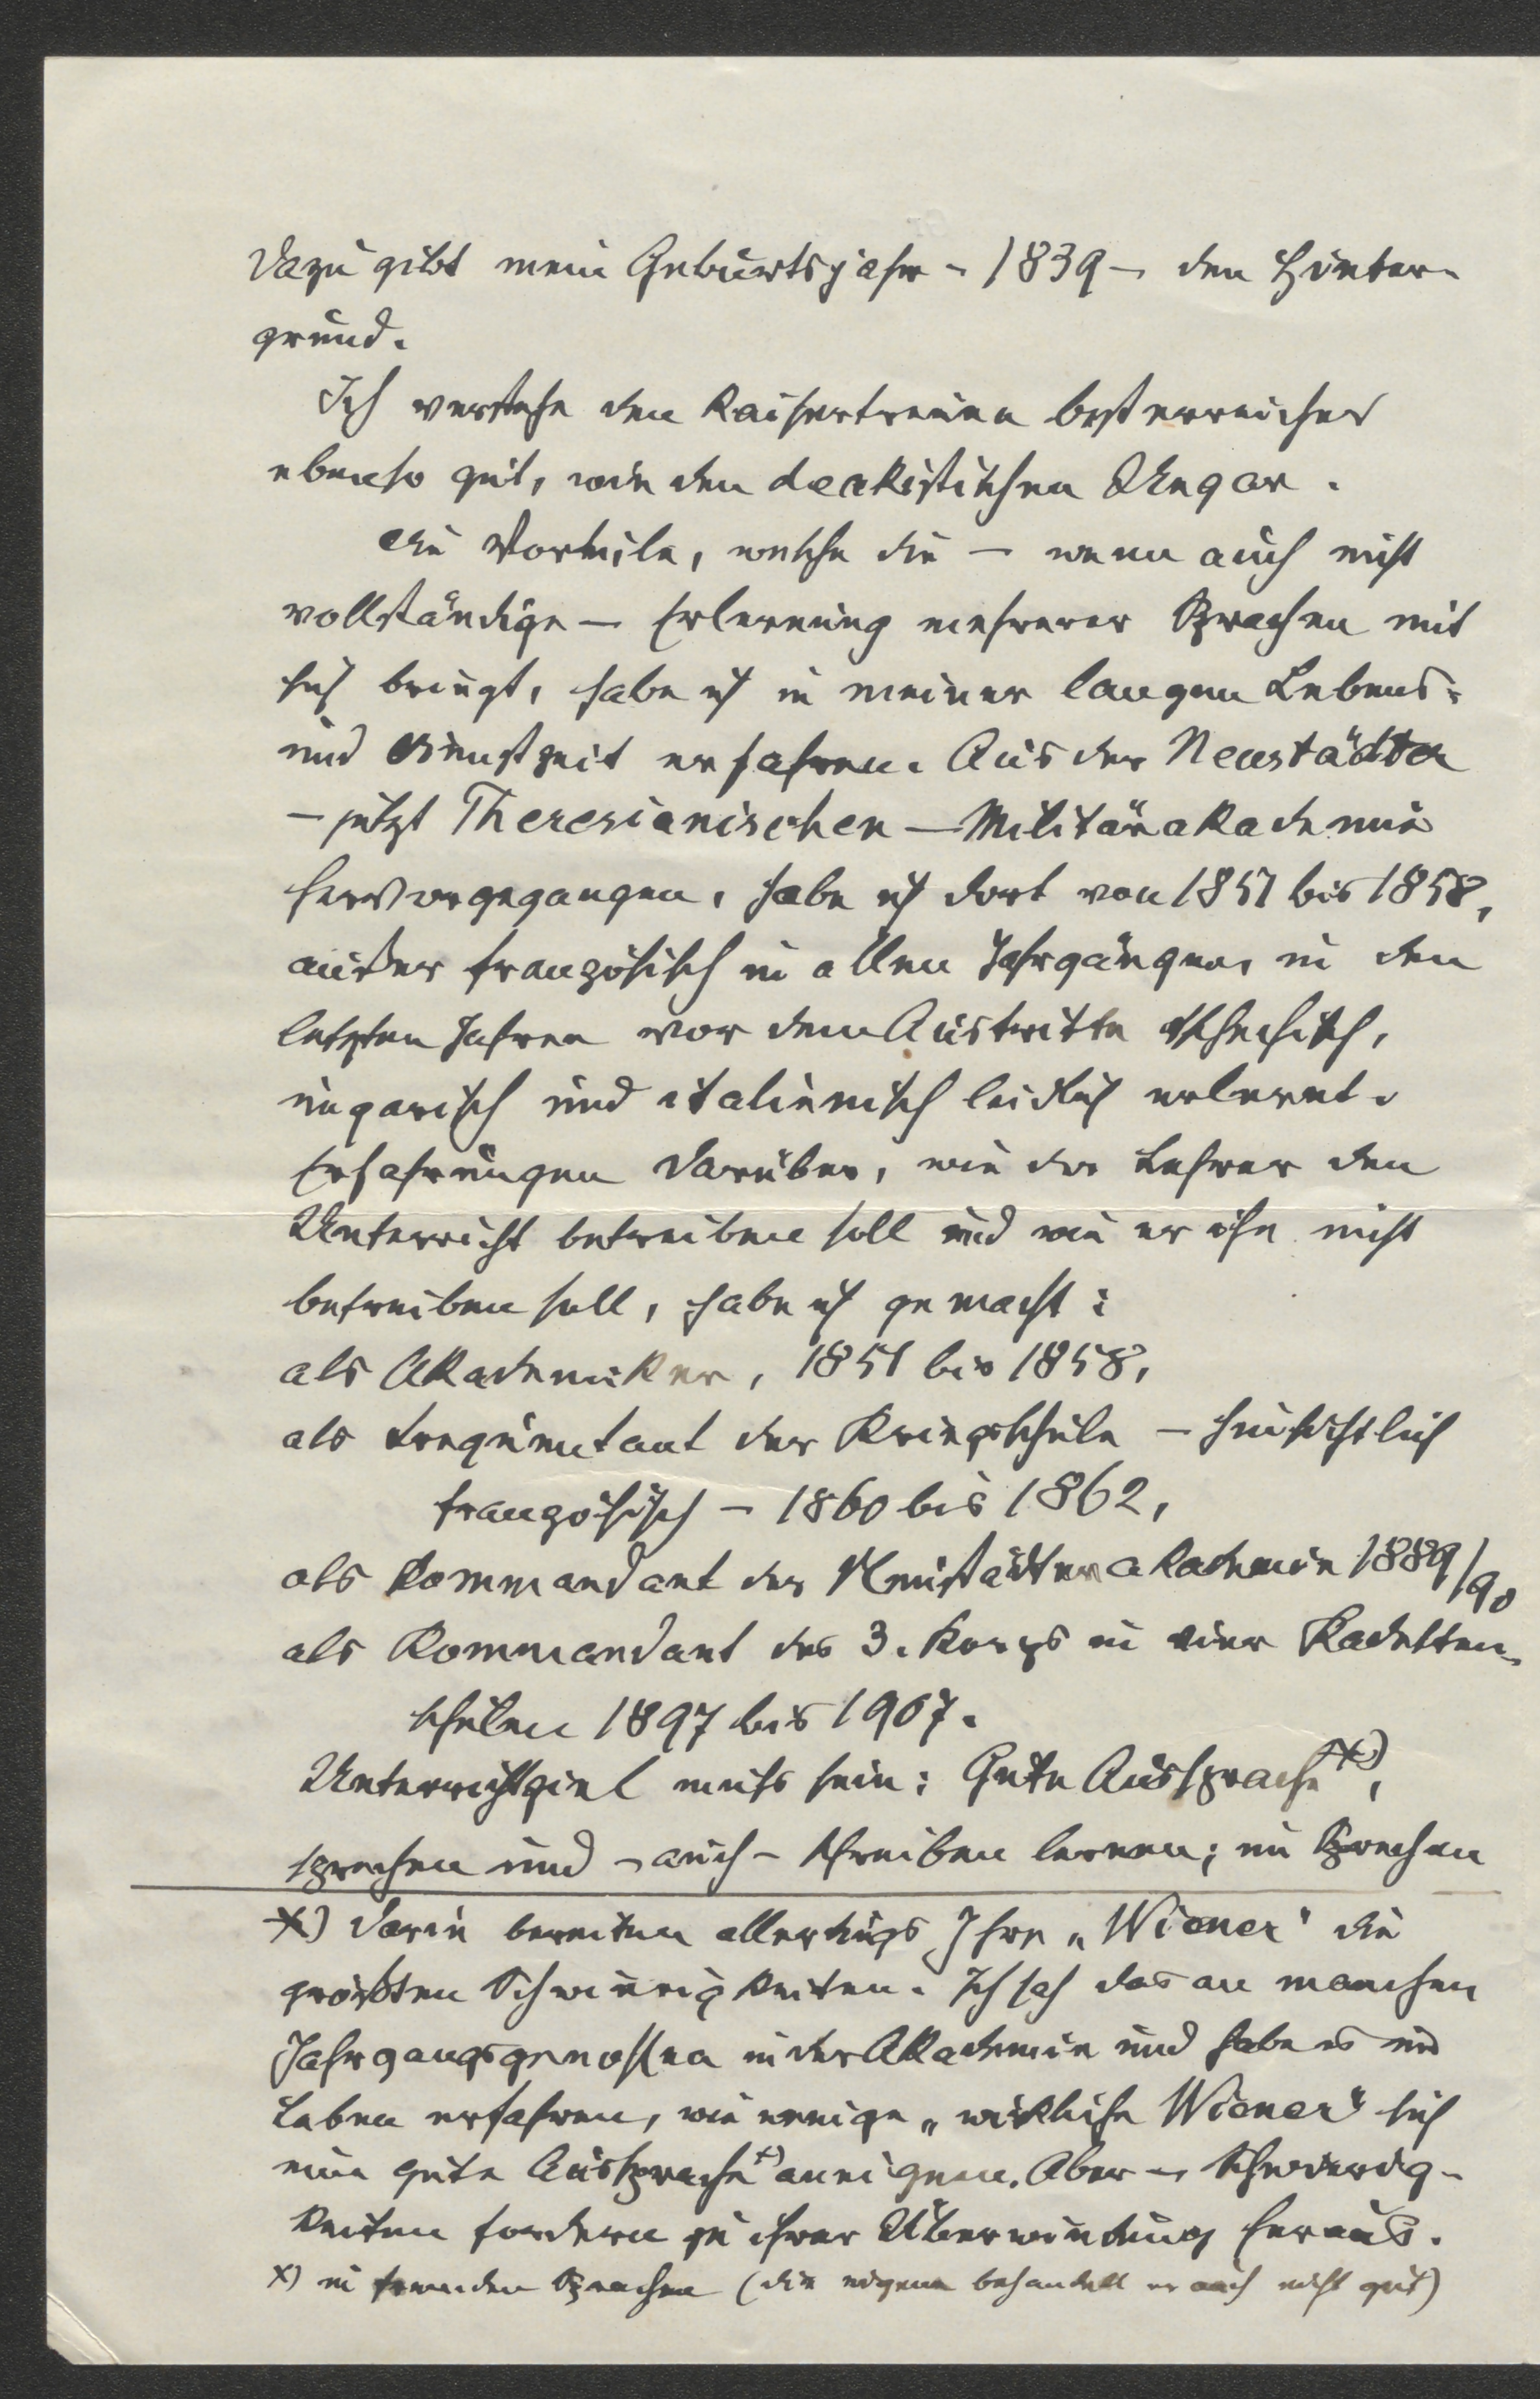 Dazu gibt mein Geburtsjahr – 1839 – den Hinter-
grund.
Ich verstehe den Kaisertreuen Oesterreicher
ebenso gut, wie den deakistischen Ungar.
Die Vorteile, welche die – wenn auch nicht
vollständige – Erlernung mehrerer Sprachen mit
sich bringt, habe ich in meiner langen Lebens-
und Dienstzeit erfahren. Aus der Neustädter
– jetzt Theresianischen – Militärakademie
hervorgegangen, habe ich dort von 1851 bis 1858,
außer französisch in allen Jahrgängen, in den
letzten Jahren vor dem Austritte tschechisch,
ungarisch und italienisch leidlich erlernt.
Erfahrungen darüber, wie der Lehrer den
Unterricht betreiben soll und wie er ihn nicht
betreiben soll, habe ich gemacht:
als Akademiker, 1851 bis 1858,
als Frequentant der Kriegsschule – hinsichtlich
französisch – 1860 bis 1862,
als Kommandant der Neustädterakademie 1889/90
als Kommandant des 3. Korps in vier Kadetten-
schulen 1897 bis 1907.
Unterrichtsziel muß sein: Gute Aussprache x),
sprechen und – auch – schreiben lernen; im Sprechen
x) Darin bereiten allerdings Ihre „Wiener" die
größten Schwierigkeiten. Ich sah das an manchen
Jahrgangsgenossen in der Akademie und habe es im
Leben erfahren, wie wenige „wirkliche Wiener" sich
eine gute Aussprache x) aneignen. Aber – Schwierig-
keiten fordern zu ihrer Überwindung heraus.
x) in fremden Sprachen (die eigene behandelt er auch nicht gut)